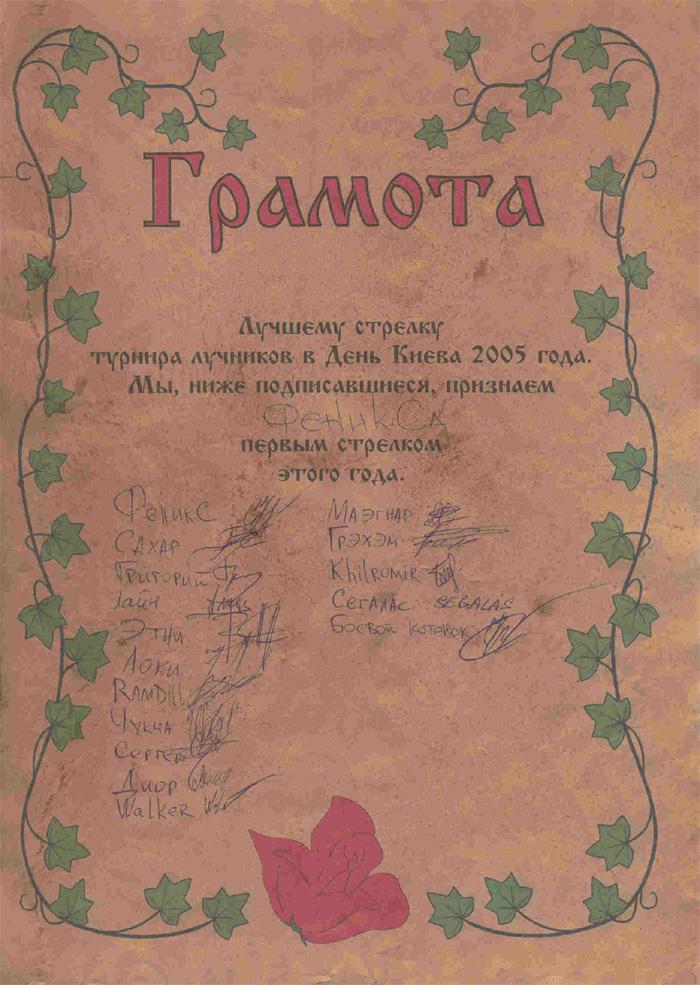 Грамота
Лучшему стрелку
турнира лучников в День Киева 2005 года.
Мы, ниже подписавшиеся, признаем
Феникса
первым стрелком
этого года.
Феникс
Сахар
Григорий
Этни
Локи
RAMDIL
Чукча
Сергей
Диор
Walker
Маэгнар
Грэхэм
Khilromir
Сегалас SEGALAS
Боевой котенок